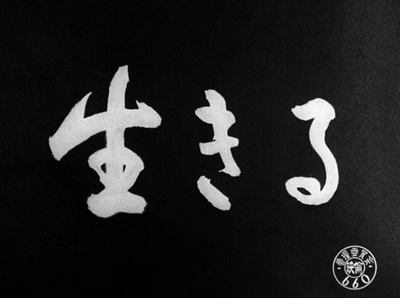 生きる
660